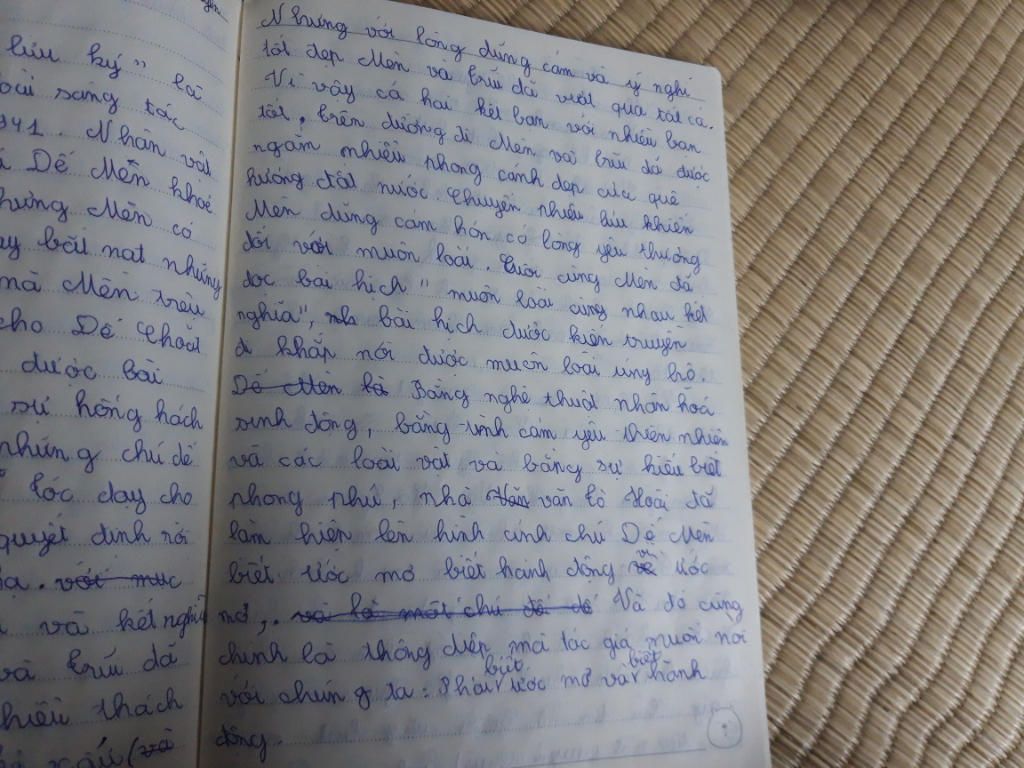 lưu ký" là
oài sáng tác
941. Nhân vật
à Dế Mèn khoẻ
hưng Mèn có
ay bắt nạt những
mà Mèn trêu
cho Dế Choắt
được bài
sự hống hách
những chú dế
tóc dạy cho
quyết định rời
với mục
và kết nghĩ
và trũi đã
hiều thách
Nhưng với lòng dũng cảm và ý nghĩ
tốt đẹp Mèn và trũi đã vượt qua tất cả.
Vì vậy cả hai kết bạn với nhiều bạn
tốt, trên đường đi Mèn và trũi đã được
ngắm nhiều phong cảnh đẹp của quê
hương đất nước. Chuyến nhiêu lưu khiến
Mèn dũng cảm hơn có lòng yêu thương
đối với muôn loài. Cuối cùng Mèn đã
đọc bài hịch " muôn loài cùng nhau kết
nghĩa", bài hịch được kiến truyền
đi khắp nơi được muôn loài ủng hộ.
Dế Mèn là Bằng nghệ thuật nhân hoá
sinh động, bằng tình cảm yêu thiên nhiên
và các loài vật và bằng sự hiểu biết
phong phú, nhà văn văn tô Hoài đã
làm hiện lên hình ảnh chú Dế Mèn
biết ước mơ biết hành động vì ước
mơ, và là một chú dế Và đó cũng
chính là thông điệp mà tác giả muốn nói
với chúng ta: Phải biết ước mơ và biết hành
động.